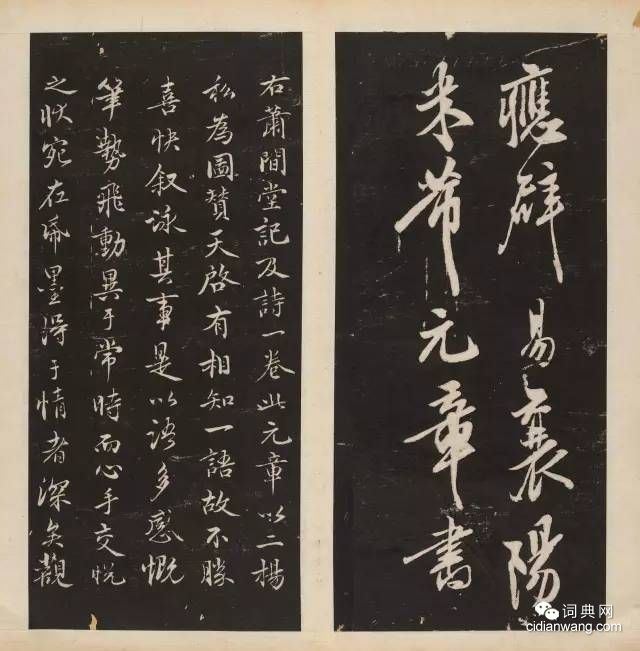 應辟 易襄陽
米芾元章書
右蕭閒堂記及詩一卷此元章以二楊
私為圖贊天啓有相知一語故不勝
喜快叙詠其事是以語多感慨
筆勢飛動異于常時而心手交悅
之狀宛在帋墨得于情者深矣觀
词典网
cidianwang.com